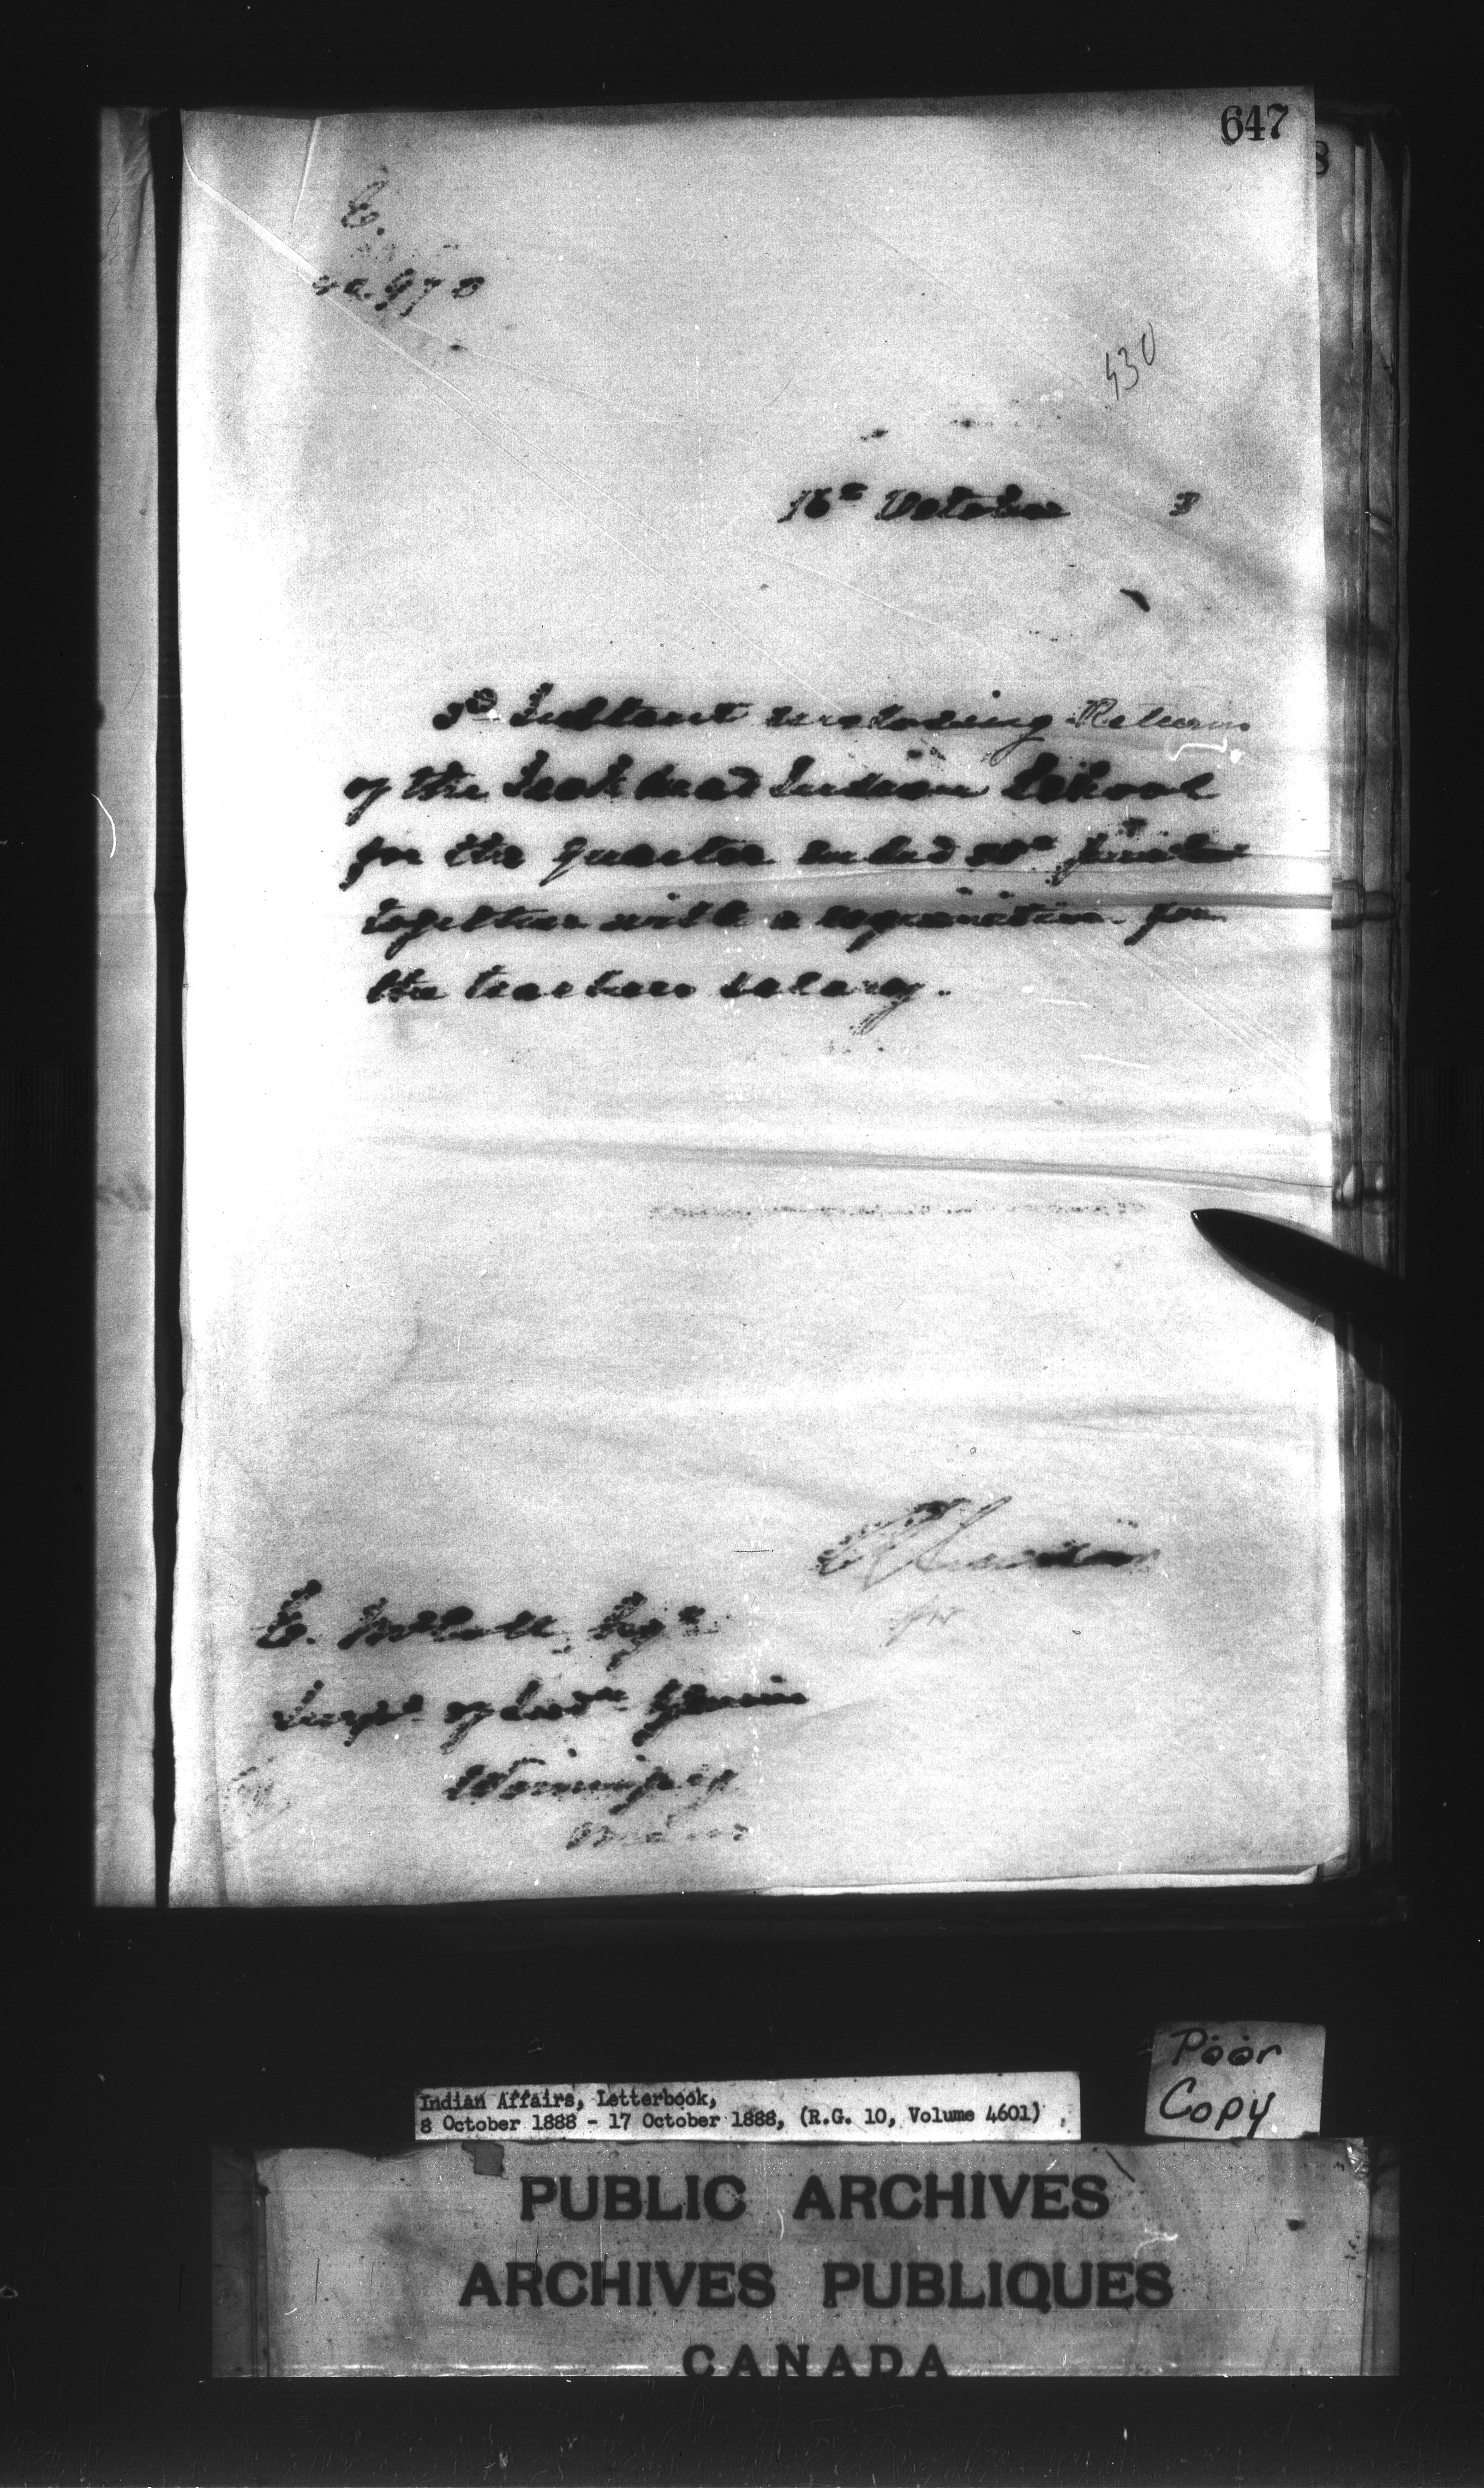 647
E.
530
16th October 8
3rd Instant enclosing Returns
of the Jack Head Indian School
for the quarter ended 30th
together with a requisition for
the teachers salary.
for
E. McColl, Esqr
Supt of Indn Agencies
Winnipeg
Man
Poor
Copy
Indian Affairs, Letterbook,
8 October 1888 - 17 October 1888, (R.G. 10, Volume 4601)
PUBLIC ARCHIVES
ARCHIVES PUBLIQUES
CANADA